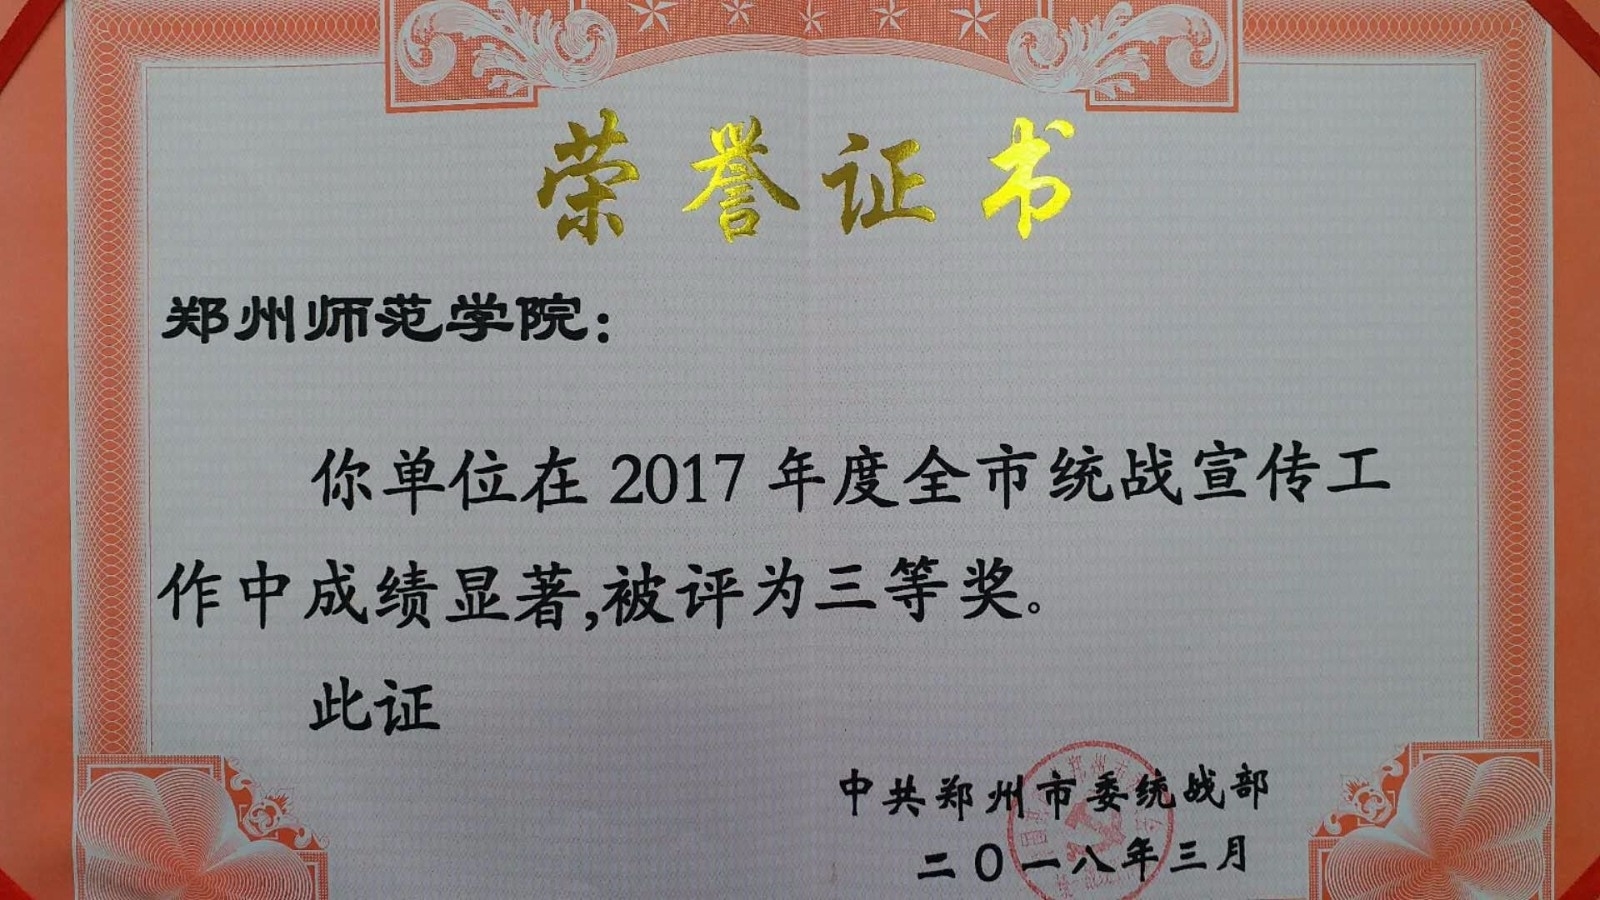 荣誉证书
郑州师范学院：
你单位在2017年度全市统战宣传工
作中成绩显著,被评为三等奖。
此证
中共郑州市委统战部
二〇一八年三月